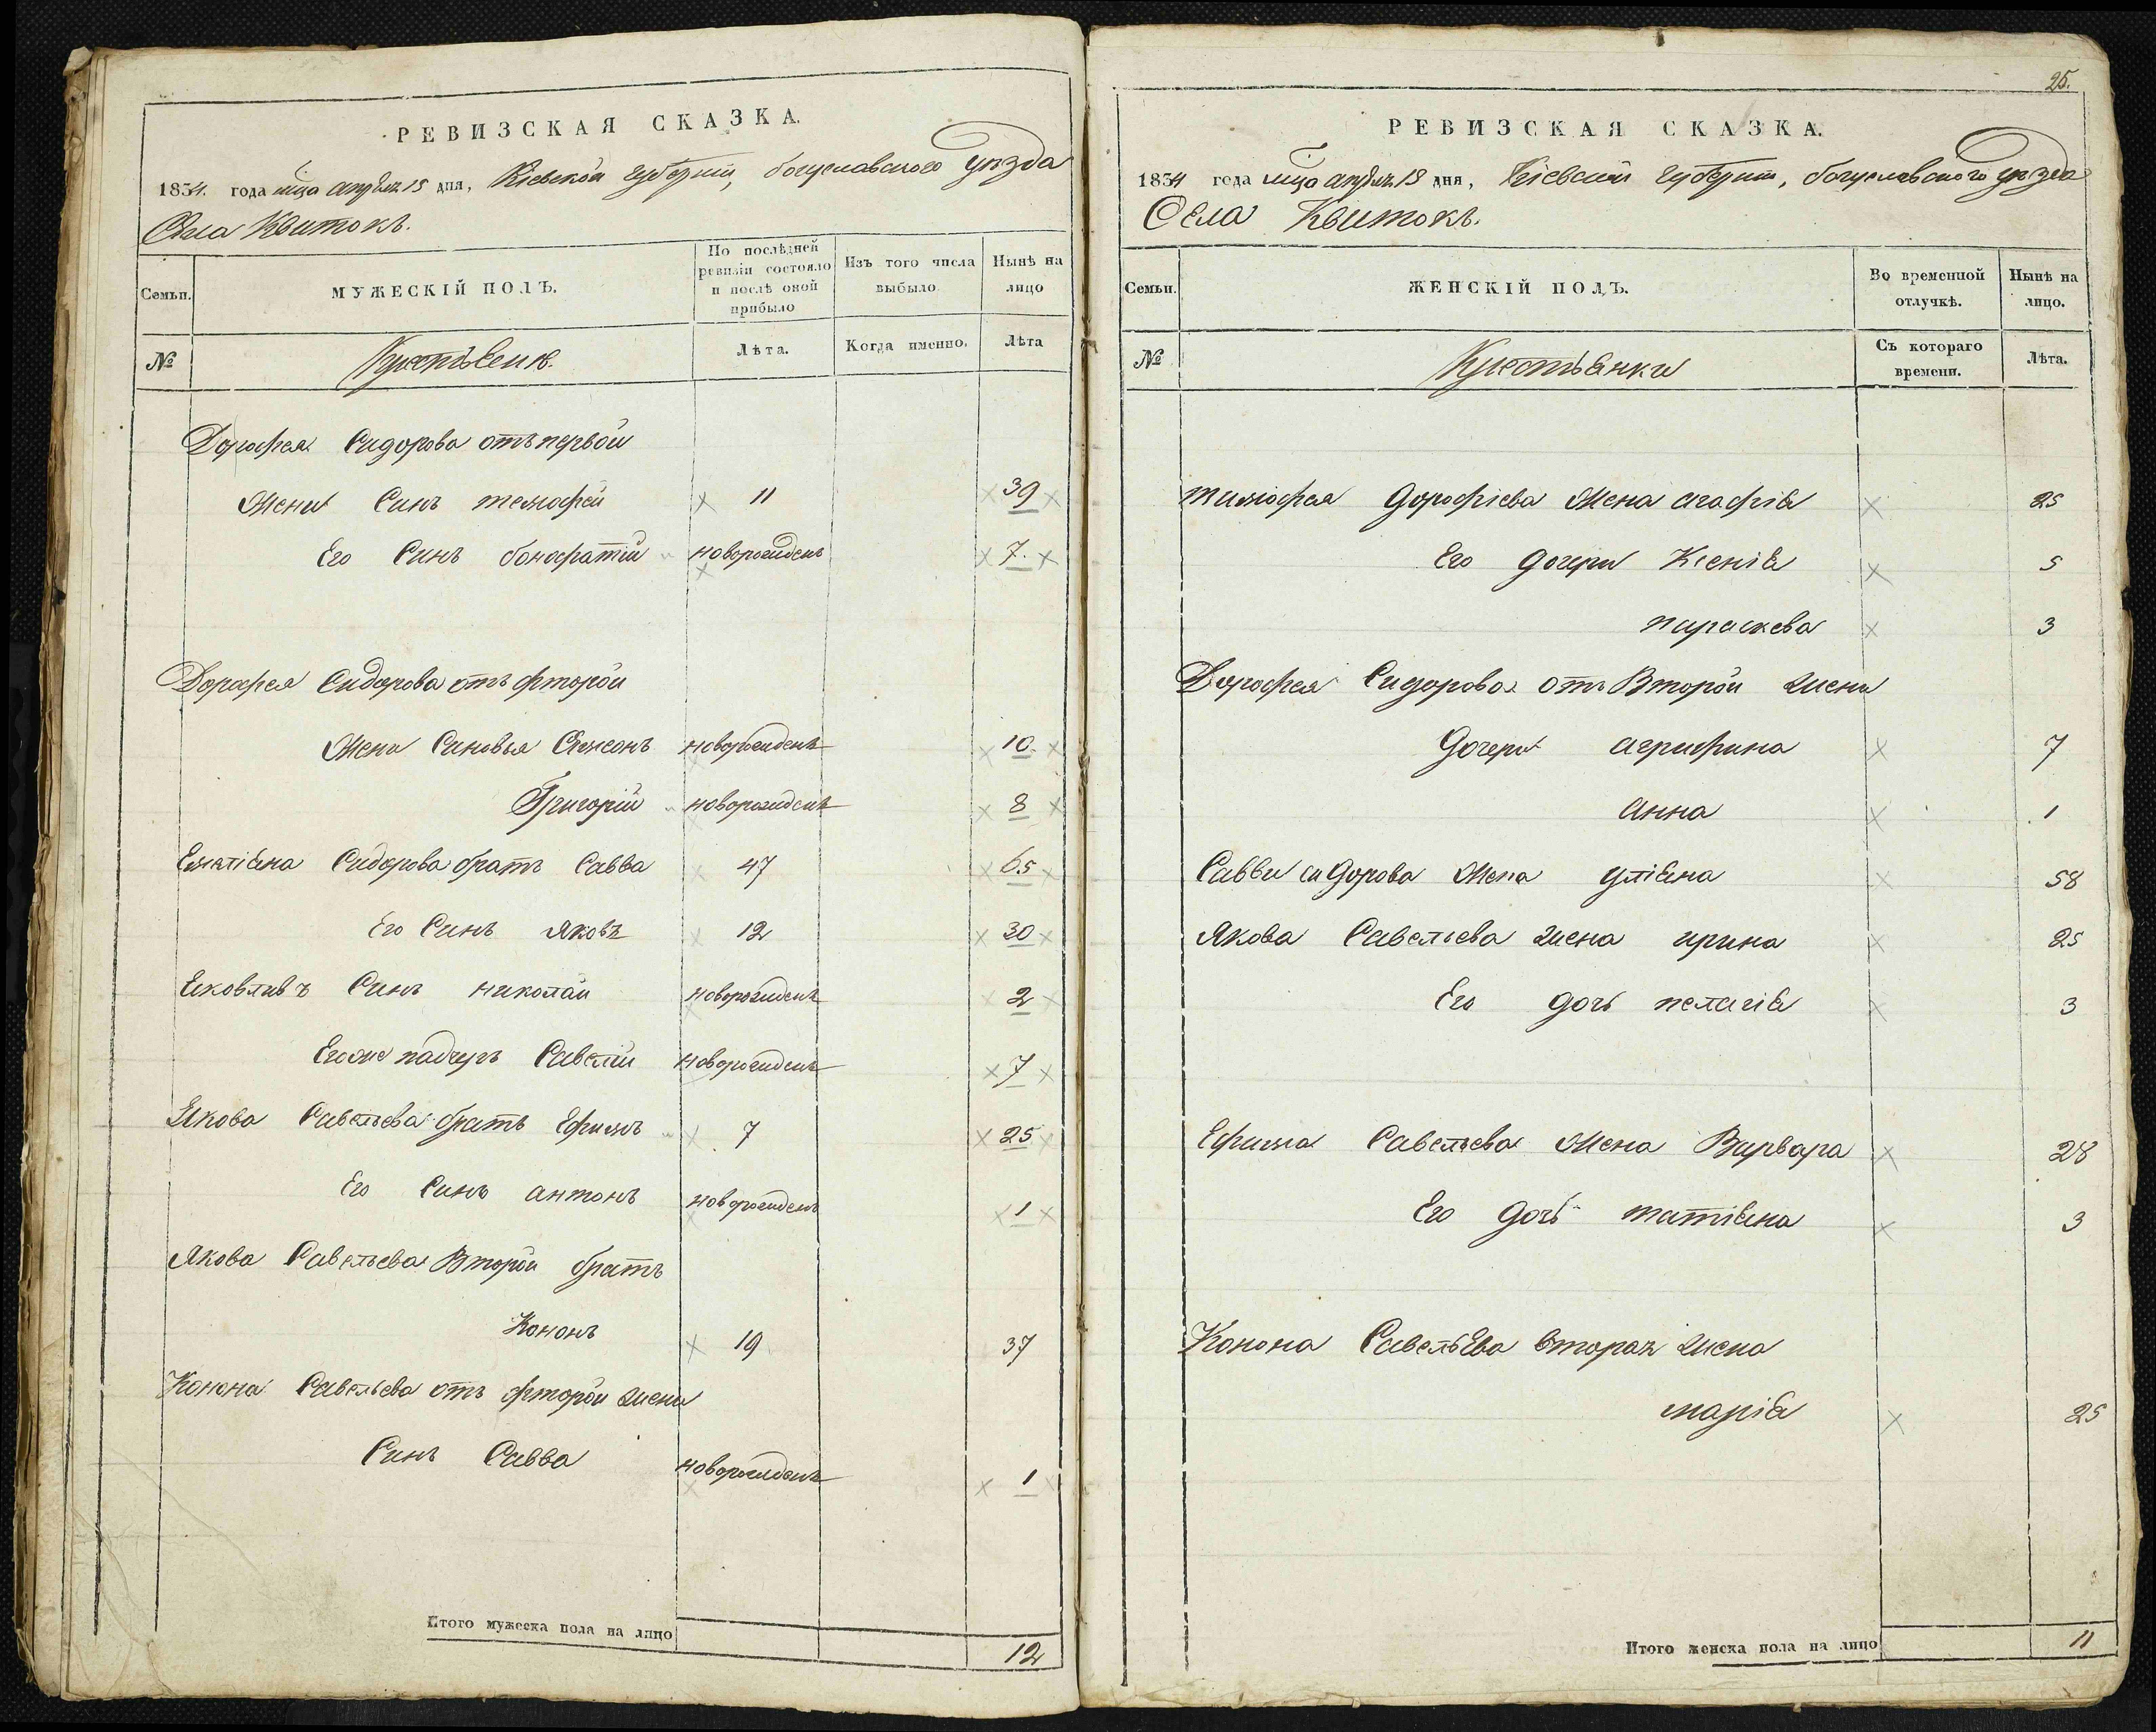 РЕВИЗСКАЯ СКАЗКА.
1834. года мца апреля 15 дня, Кіевской губерніи, богуславского уѣзда
Села Квитокъ.
Семьи.
МУЖЕСКІЙ ПОЛЪ.
По послѣдней ревизіи состояло и послѣ оной прибыло
Изъ того числа выбыло
Нынѣ на лицо
№
Лѣта.
Когда именно.
Лѣта
Дорофея Сидорова отъ первой
жени Синъ тимофей 11 39
Его Синъ бонифатій новорожденъ 7.
Дорофея Сидорова отъ фторой
жени Синовья Симеонъ новорожденъ 10
Григорій новорожденъ 8
Емиліяна Сидорова братъ Савва 47 65
Его Синъ Яковъ 12 30
Яковливъ Синъ николай новорожденъ 2
Егоже Савелій новорожденъ 7
Якова Савельева братъ Ефимъ 7 25
Его Синъ антонъ новорожденъ 1
Якова Савельева Второй братъ
Кононъ 19 37
Конона Савельева отъ фторой жени
Синъ Савва новорожденъ 1
Итого мужеска пола на лицо 12
25.
РЕВИЗСКАЯ СКАЗКА.
1834 года мца апреля 15 дня, Кіевской губерніи, богуславского уѣзда
Села Квитокъ.
Семьи.
ЖЕНСКІЙ ПОЛЪ.
Во временной отлучкѣ.
Нынѣ на лицо.
№
Крестьянки
Съ котораго времени.
Лѣта.
тимофея дорофіева жена агафія 25
Его дочери Ксенія 5
параскева 3
Дорофея Сидорова отъ Второй жени
дочери агрифина 7
анна 1
Савви сидорова жена уліяна 58
Якова Савельева жена ирина 25
Его дочь пелагія 3
Ефима Савельева жена Варвара 28
Его дочь татіяна 3
Конона Савельева вторая жена
марія 25
Итого женска пола на лицо 11